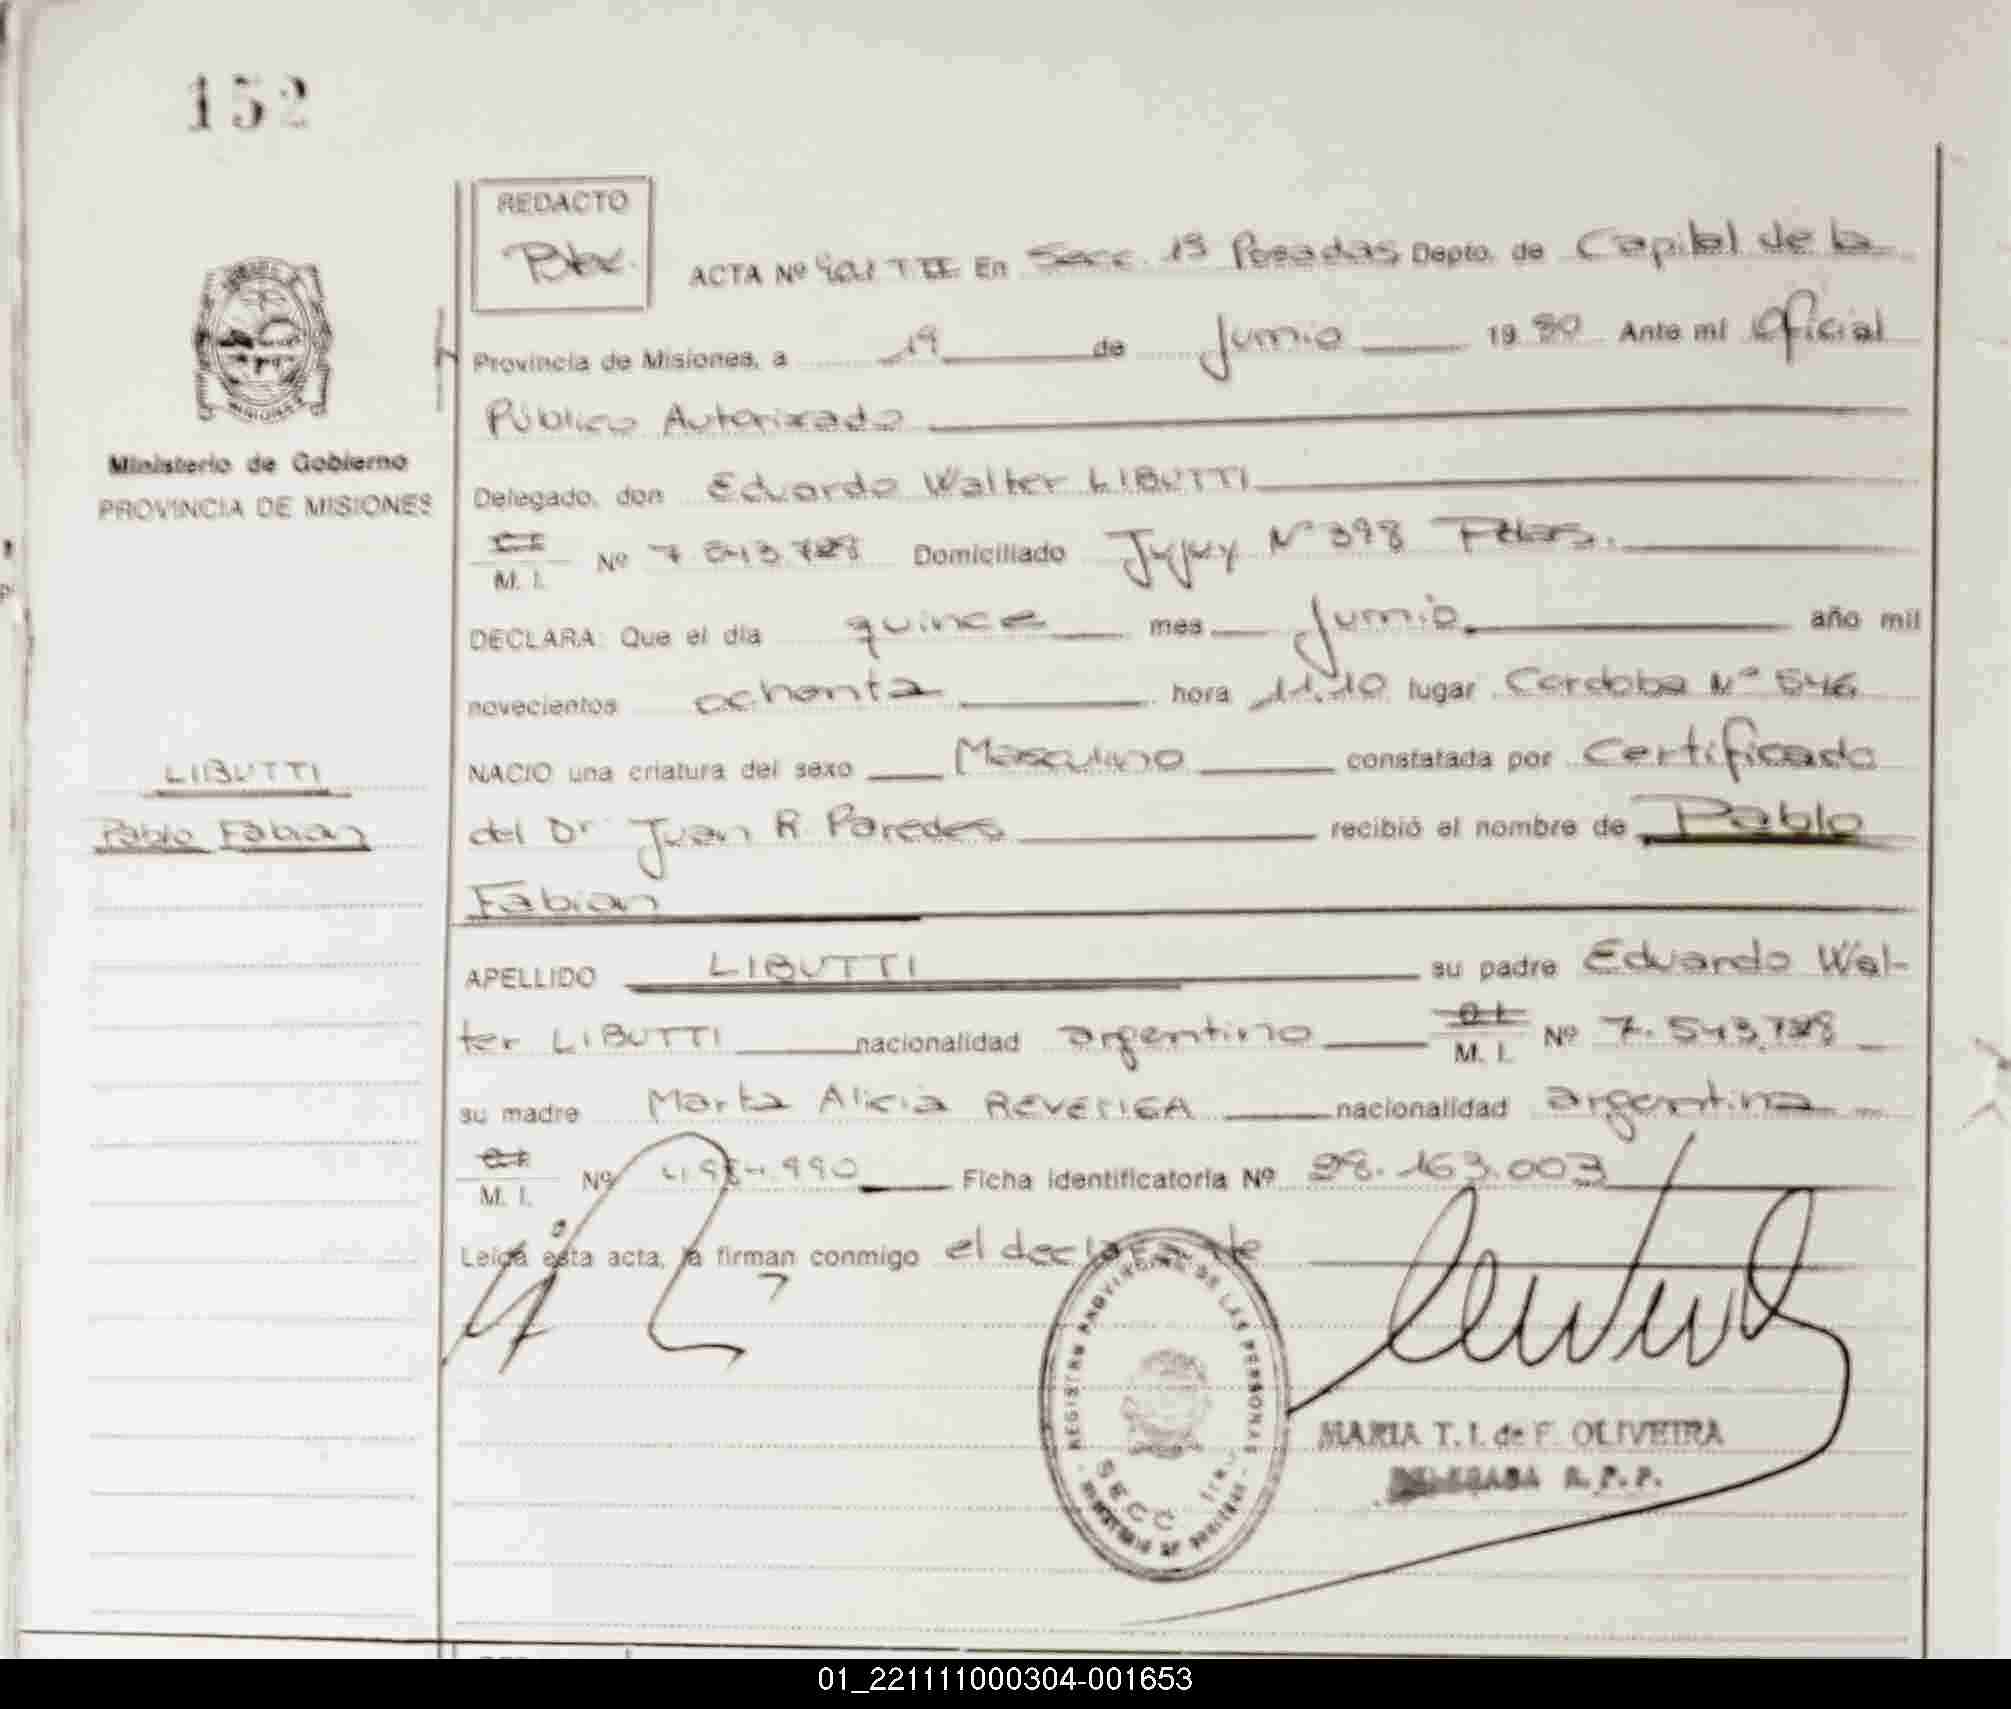 152
REDACTO
ACTA Nº TII En Secc. 1ª Posadas Depto. de Capital de la
Provincia de Misiones, a 19 de Junio 1980 Ante mi Oficial
Público Autorizado
Ministerio de Gobierno
PROVINCIA DE MISIONES
Delegado, don Eduardo Walter LIBUTTI
C.I.
M. I. Nº 7.543.788 Domiciliado Jujuy Nº 398 Pdas.
DECLARA: Que el día quince mes Junio año mil
novecientos ochenta hora 11.10 lugar Cordoba Nº 546
NACIO una criatura del sexo Masculino constatada por Certificado
del Dr Juan R. Paredes recibió el nombre de Pablo
Fabian
LIBUTTI
Pablo Fabian
APELLIDO LIBUTTI su padre Eduardo Wal-
ter LIBUTTI nacionalidad argentino C.I. M. I. Nº 7.543.788
su madre Marta Alicia nacionalidad argentina
C.I.
M. I. Nº Ficha identificatoria Nº 28.163.003
Leída esta acta, la firman conmigo el declarante
REGISTRO PROVINCIAL DE LAS PERSONAS
SECC. 1ra.
MARIA T. I. de F. OLIVEIRA
DELEGADA R. P. P.
01_221111000304-001653